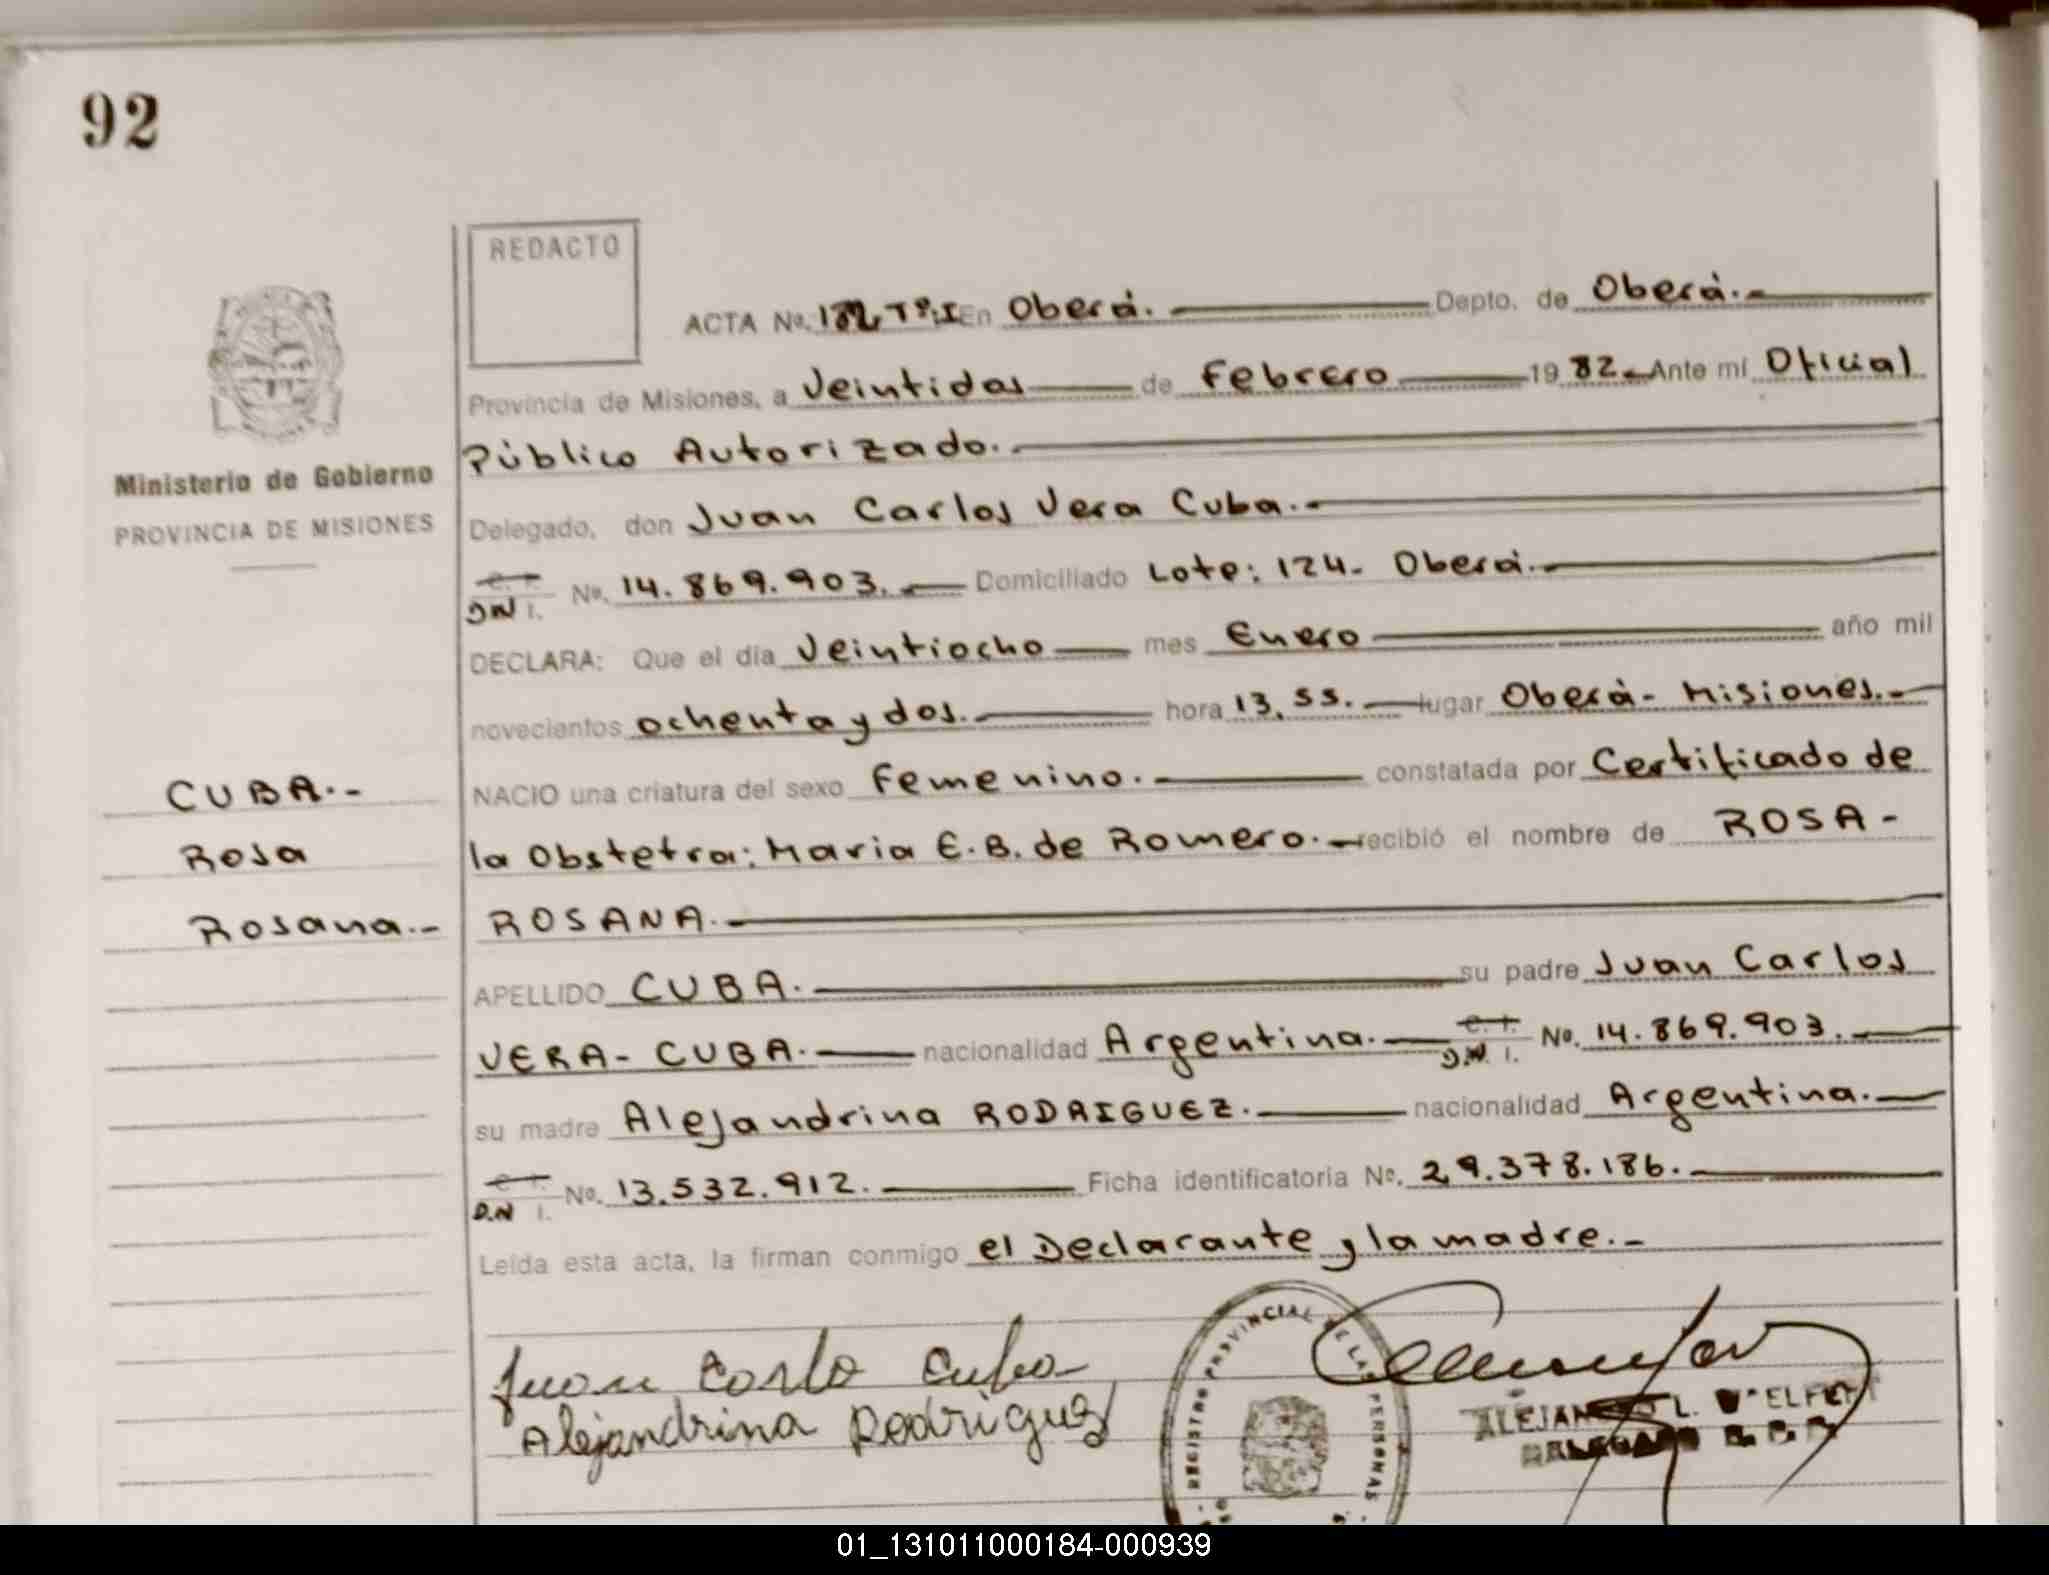 92
REDACTO
ACTA No. 182 Tº:I En Oberá. Depto. de Oberá.-
Provincia de Misiones, a Veintidos de Febrero 1982 Ante mí Oficial
Público Autorizado.
Ministerio de Gobierno
PROVINCIA DE MISIONES
Delegado, don Juan Carlos Vera Cuba.-
C. I.
D.N I. No. 14.869.903. Domiciliado Lote: 124. Oberá.
DECLARA: Que el día Veintiocho mes Enero año mil
novecientos ochenta y dos. hora 13,55. lugar Oberá- Misiones.-
CUBA.-
NACIO una criatura del sexo Femenino. constatada por Certificado de
Rosa
la Obstetra: Maria E.B. de Romero. recibió el nombre de ROSA-
Rosana.-
ROSANA.
APELLIDO CUBA. su padre Juan Carlos
VERA- CUBA. nacionalidad Argentina. C. I. D.N. I. No. 14.869.903.
su madre Alejandrina RODRIGUEZ. nacionalidad Argentina.
C. I.
D.N I. No. 13.532.912. Ficha identificatoria No. 29.378.186.
Leída esta acta, la firman conmigo el Declarante y la madre.-
Juan Carlo Cuba
Alejandrina Rodriguez
REGISTRO PROVINCIAL DE LAS PERSONAS
01_131011000184-000939